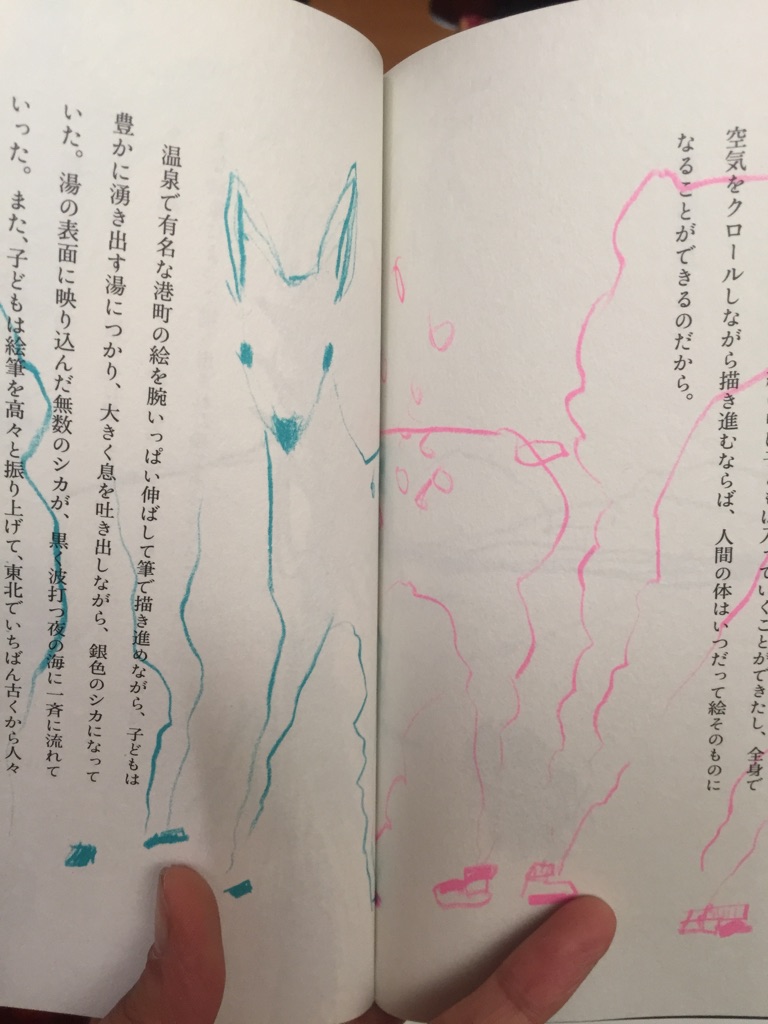 入っていくことができたし、全身で
空気をクロールしながら描き進むならば、人間の体はいつだって絵そのものに
なることができるのだから。
温泉で有名な港町の絵を腕いっぱい伸ばして筆で描き進めながら、子どもは
豊かに湧き出す湯につかり、大きく息を吐き出しながら、銀色のシカになって
いた。湯の表面に映り込んだ無数のシカが、黒く波打つ夜の海に一斉に流れて
いった。また、子どもは絵筆を高々と振り上げて、東北でいちばん古くから人々